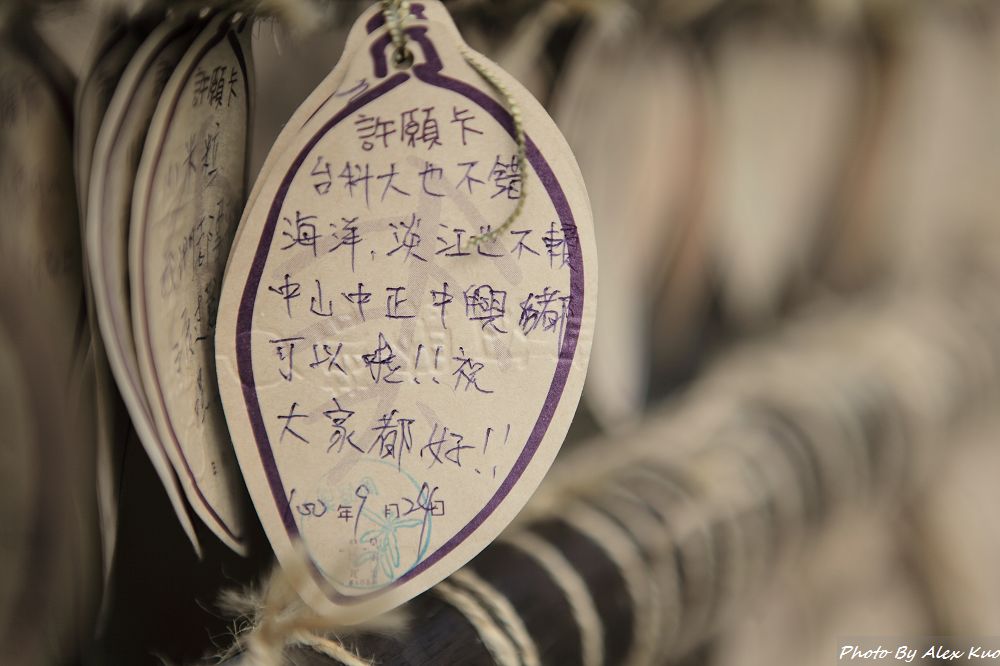 許願卡
台科大也不錯
海洋,淡江也不賴
中山中正中興都
可以唷!!祝
大家都好!!
100年9月24日
許願卡
Photo By Alex Kuo